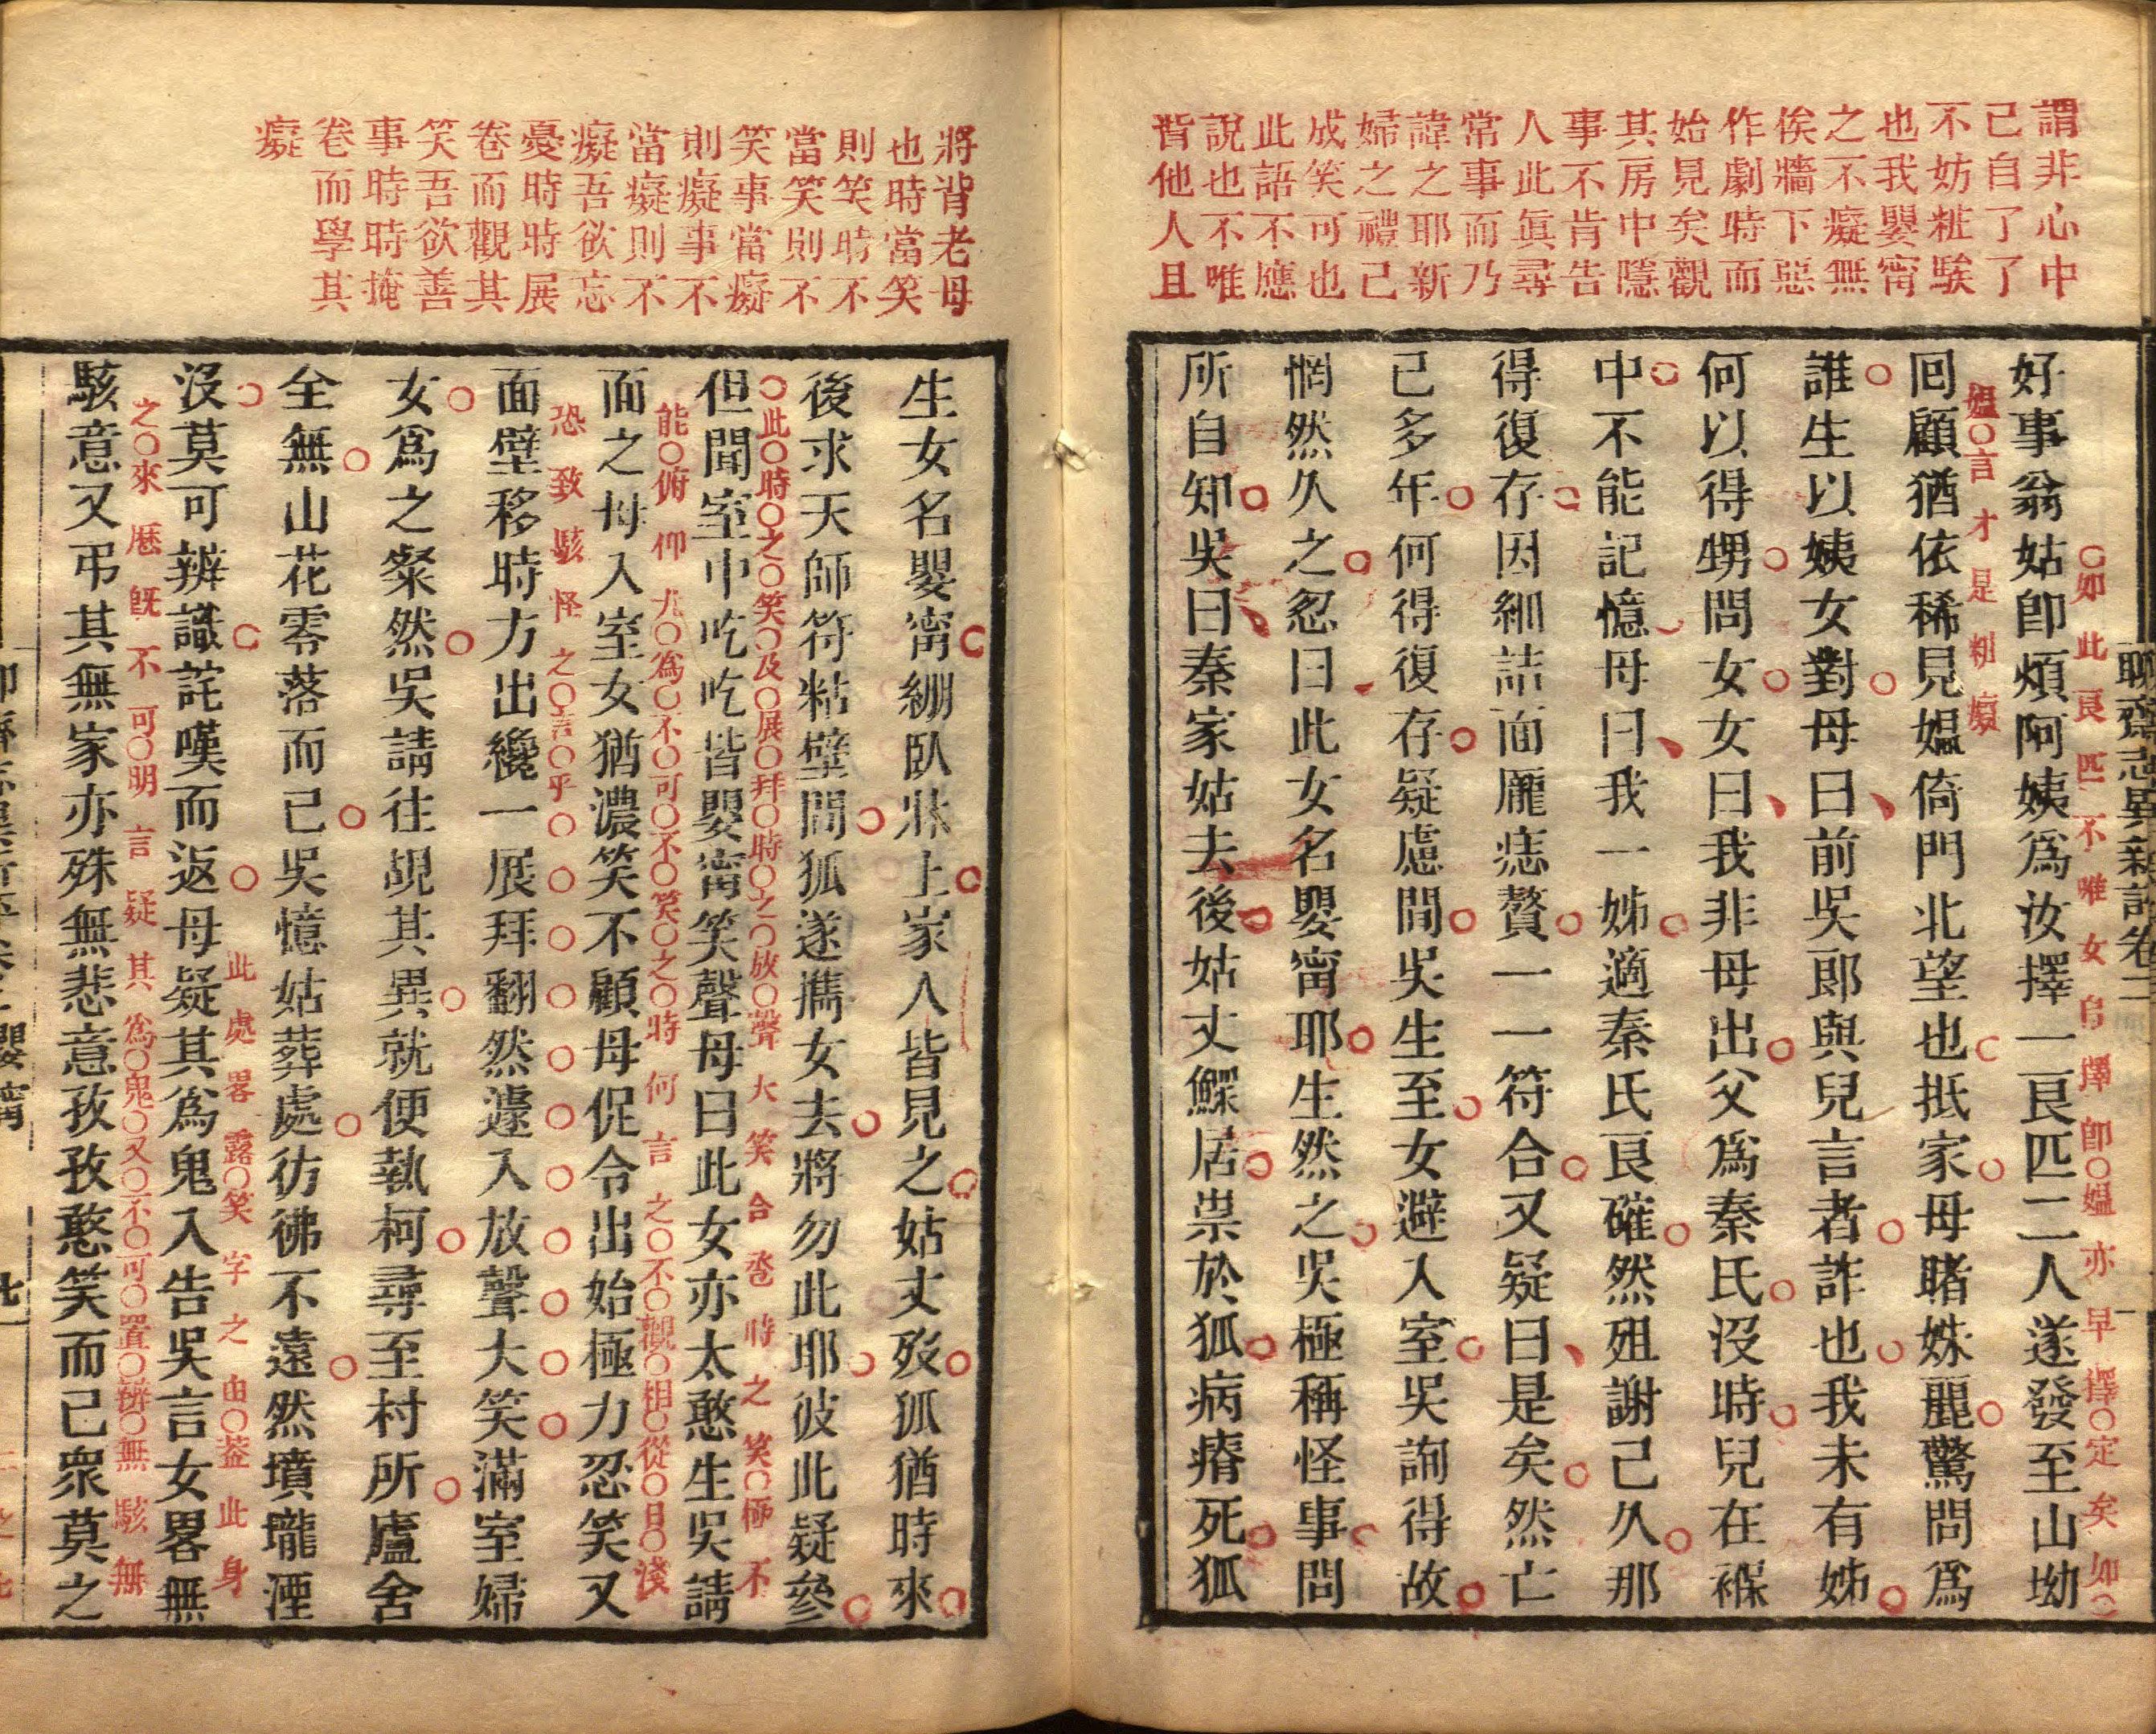 謂非心中
己自了了
不妨粧騃
也我嬰甯
之不癡無
俟牆下惡
作劇時而
始見矣觀
其房中隱
事不肯告
人此眞尋
常事而乃
諱之耶新
婦之禮己
成笑可也
此語不應
說也不唯
背他人且
聊齋志異新評卷二
○如此良匹不唯女自擇卽○媼亦早擇○定矣如○
好事翁姑卽煩阿姨爲汝擇一良匹二人遂發至山坳
媼○言才是粧癡
回顧猶依稀見媼倚門北望也抵家母睹姝麗驚問爲
誰生以姨女對母曰前吳郎與兒言者詐也我未有姊
何以得甥問女女曰我非母出父爲秦氏沒時兒在褓
中不能記憶母曰我一姊適秦氏良確然殂謝己久那
得復存因細詰面龐痣贅一一符合又疑曰是矣然亡
己多年何得復存疑慮間吳生至女避入室吳詢得故
惘然久之忽曰此女名嬰甯耶生然之吳極稱怪事問
所自知吳曰秦家姑去後姑丈鰥居祟於狐病瘠死狐
將背老母
也時當笑
則笑時不
當笑則不
笑事當癡
則癡事不
當癡則不
癡吾欲忘
憂時時展
卷而觀其
笑吾欲善
事時時掩
卷而學其
癡
生女名嬰甯繃臥牀上家人皆見之姑丈歿狐猶時來
後求天師符粘壁間狐遂攜女去將勿此耶彼此疑參
○此○時○之○笑○及○展○拜○時○之○放○聲大笑合巹時之笑○極不
但聞室中吃吃皆嬰甯笑聲母曰此女亦太憨生吳請
能○俯仰尤○爲○不○可○不○笑○之○時何言之○不○觀○相○從○日○淺
面之母入室女猶濃笑不顧母促令出始極力忍笑又
恐致駭怪之○言○乎○○○○○○○○○○○
面壁移時方出纔一展拜翻然遽入放聲大笑滿室婦
女爲之粲然吳請往覘其異就便執柯尋至村所廬舍
全無山花零落而己吳憶姑葬處彷彿不遠然墳壠湮
此處畧露○笑字之由○葢此身
沒莫可辨識詫嘆而返母疑其爲鬼入告吳言女畧無
之○來歷旣不可○明言疑其爲○鬼○又○不○可○置○辨○無駭無
駭意又弔其無家亦殊無悲意孜孜憨笑而己眾莫之